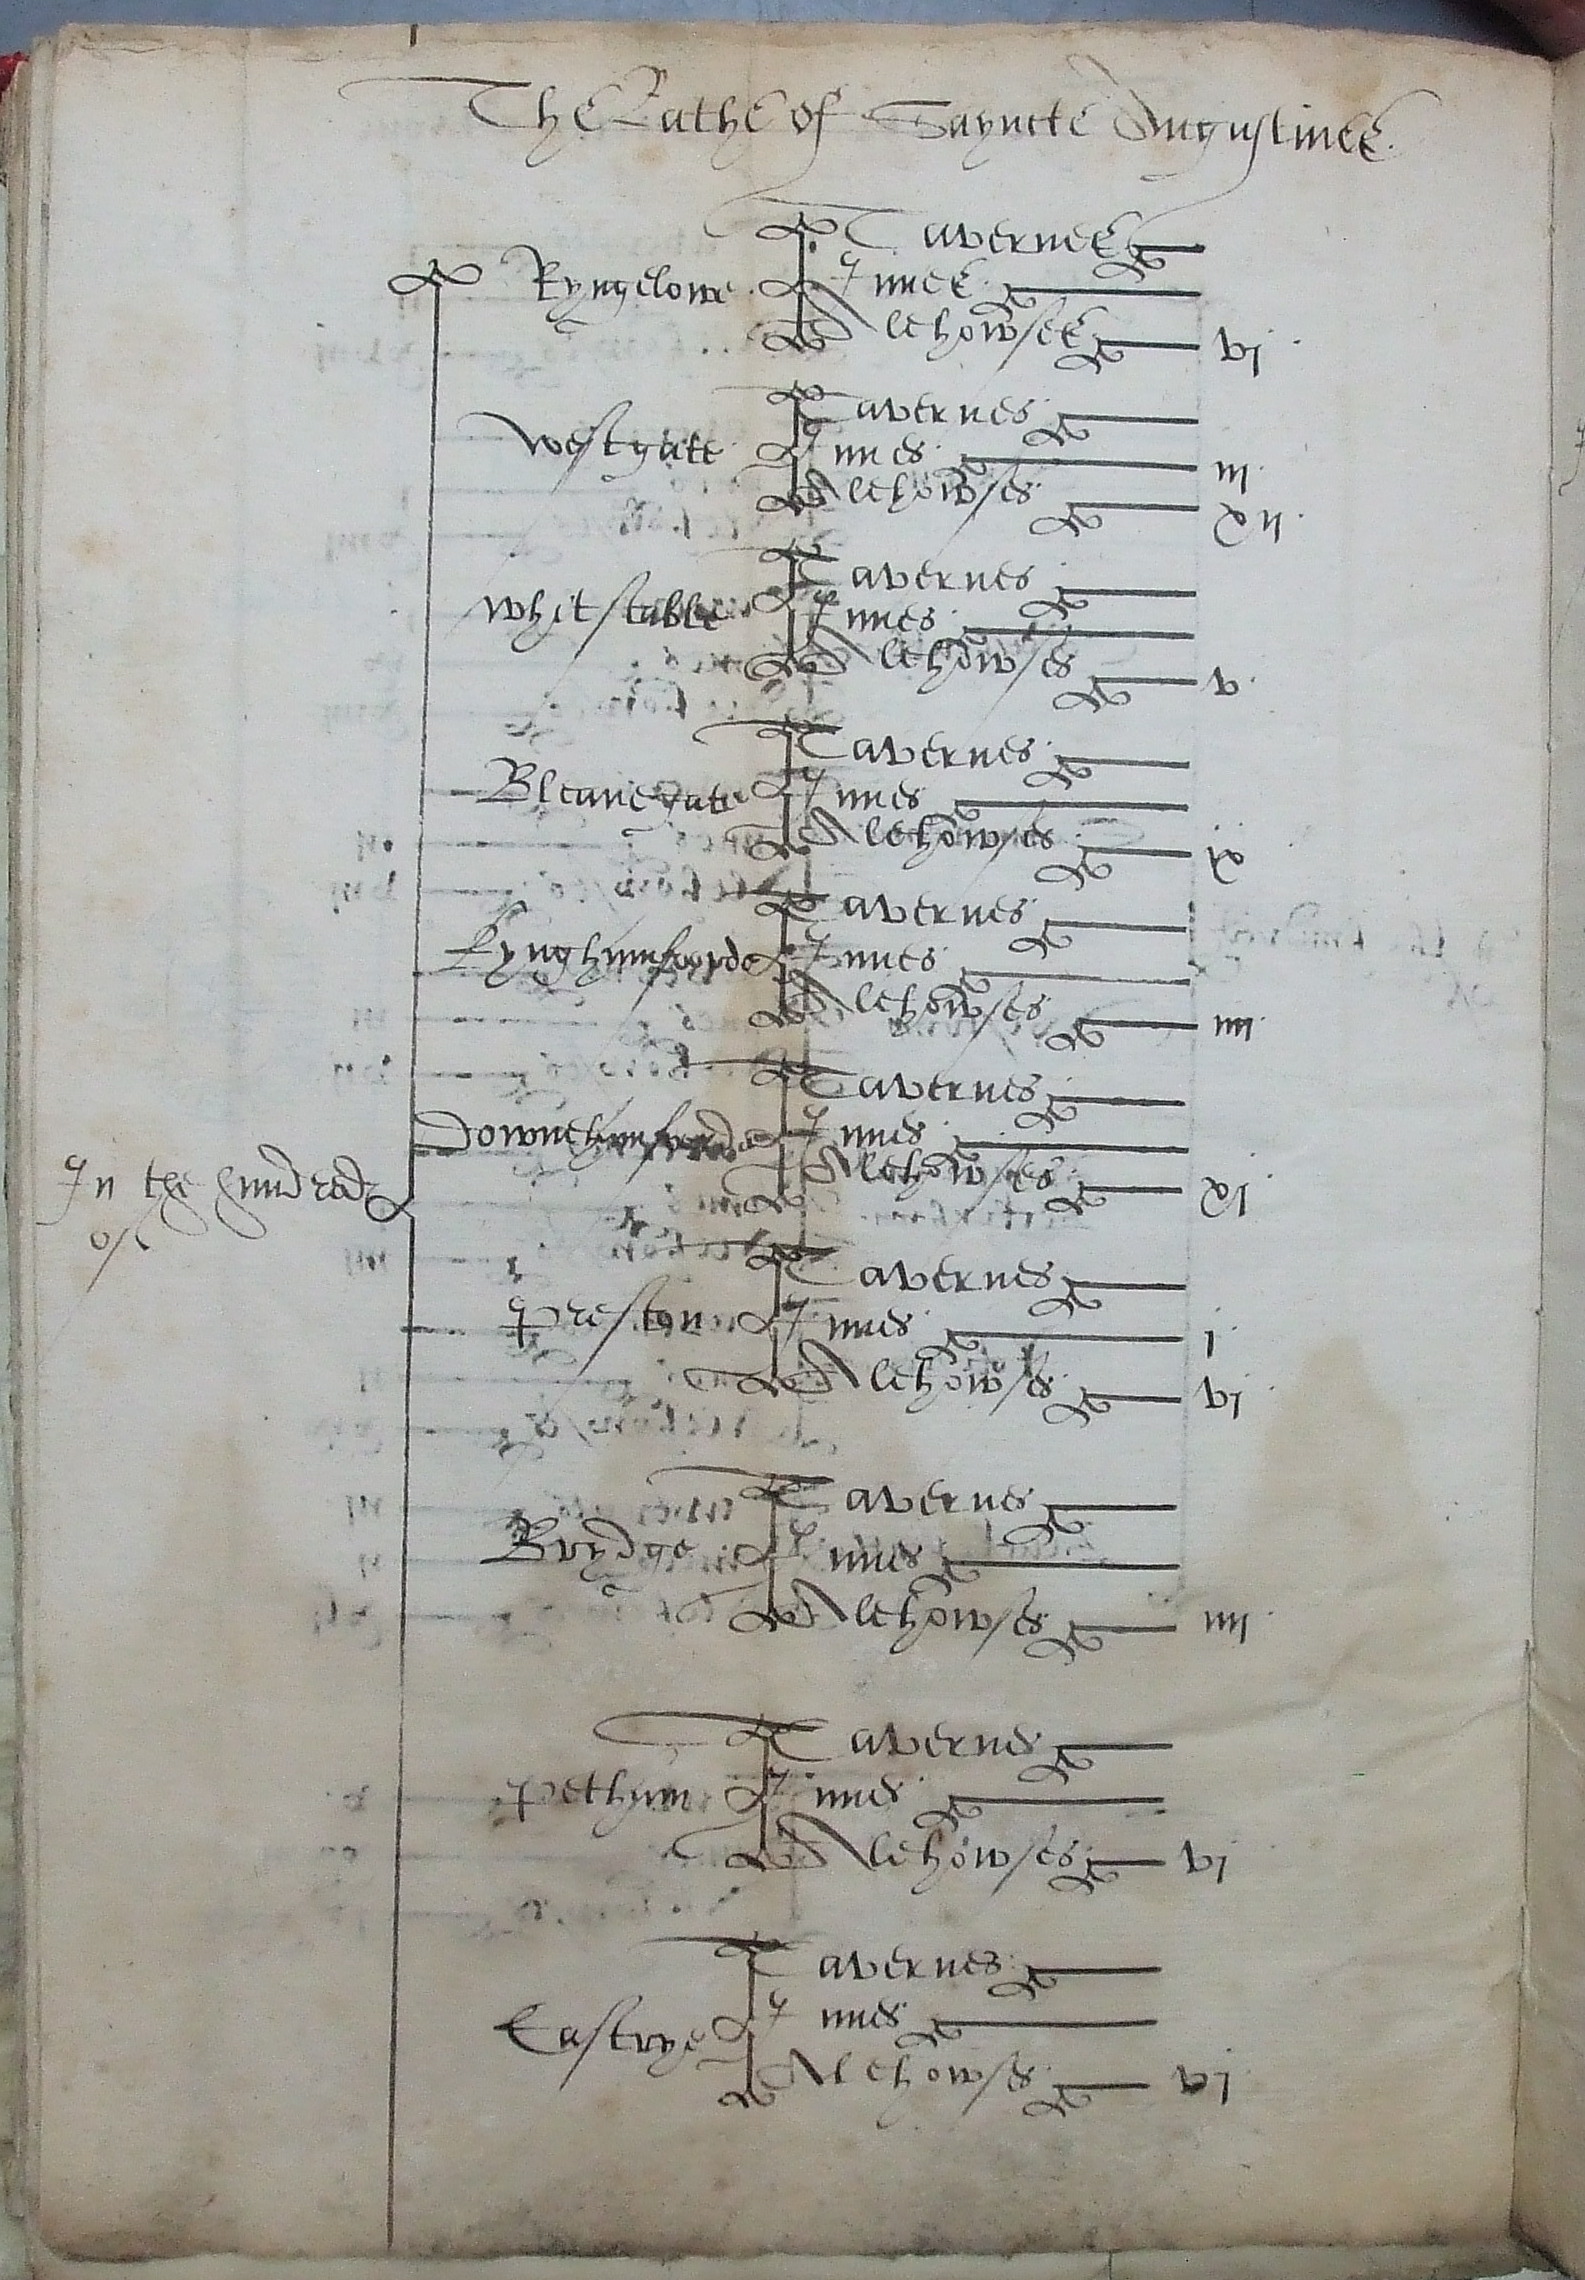 The Lathe of Sayncte Augustines.
In the hundred
of
Ryngelowe
Tavernes
Innes
Alehowses vj
Westgate
Tavernes
Innes iij
Alehowses xij
Whitstable
Tavernes
Innes
Alehowses v
Bleanegate
Tavernes
Innes
Alehowses ix
Kynghamforde
Tavernes
Innes
Alehowses iiij
Downehamforde
Tavernes
Innes
Alehowses xj
Preston
Tavernes
Innes j
Alehowses vj
Brydge
Tavernes
Innes
Alehowses iiij
Petham
Tavernes
Innes
Alehowses vj
Eastrye
Tavernes
Innes
Alehowses vj